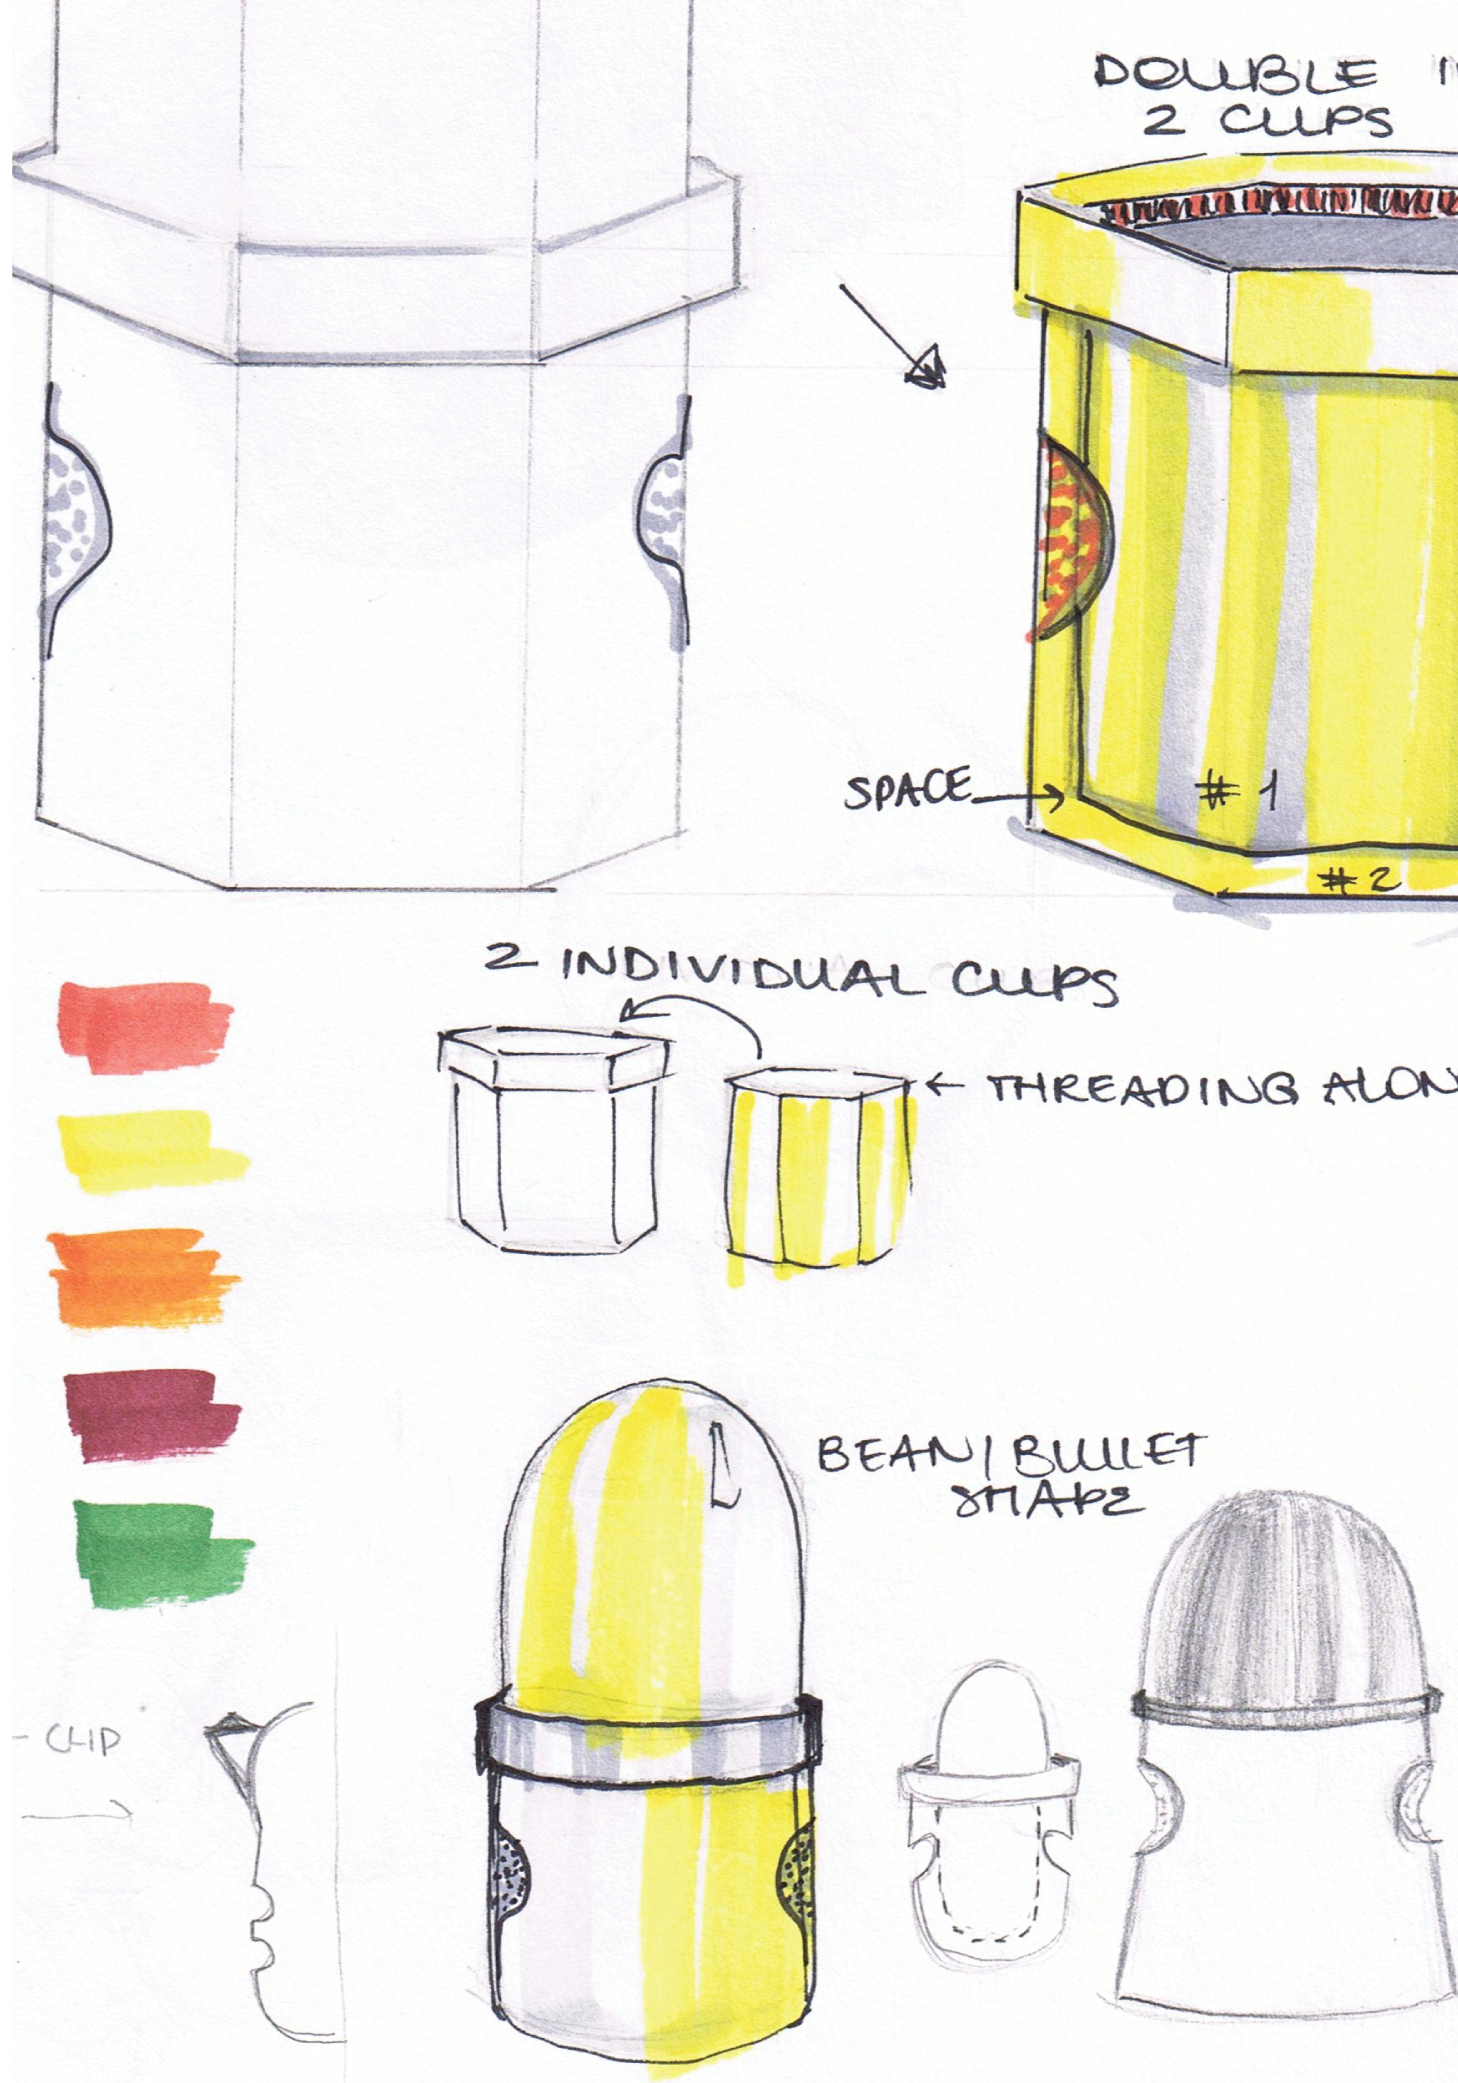 DOUBLE
2 CUPS
SPACE
# 1
# 2
2 INDIVIDUAL CUPS
← THREADING
BEAN/BULLET
SHAPE
- CLIP